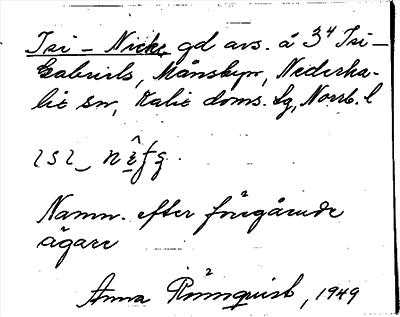 Isi – Nicke gd avs. å 3⁴ Isi–
Gabriels, Månsbyn, Nederka-
lix sn, Kalix doms. lg, Norrb. l
Namn. efter föregående
ägare
Anna Rönnquist, 1949